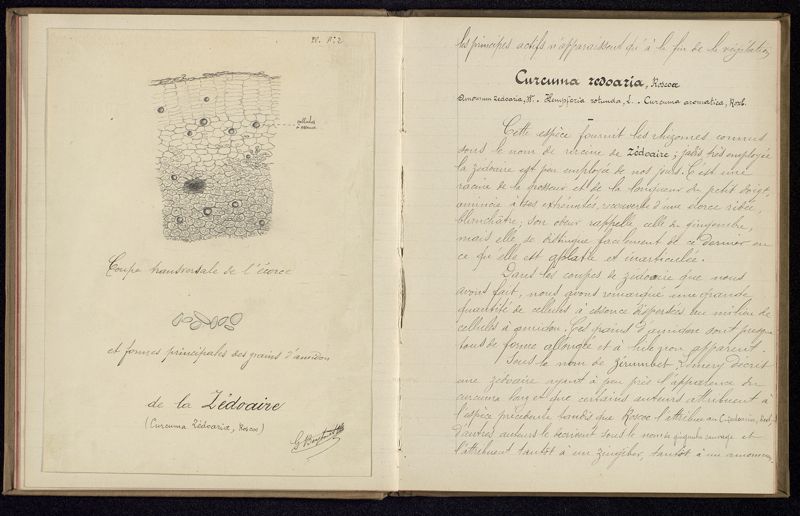 Pl. N° 2
cellules
à essence
Coupe transversale de l'écorce
et formes principales des grains d'amidon
de la Zédoaire
(Curcuma Zédoaria, Roscoe)
les principes actifs n'apparaissent qu'à la fin de la végétation
Curcuma zedoaria, Roscoe
Amomum Zedoaria, W. . Kempferia rotunda, L. . Curcuma aromatica, Roxb.
Cette espèce fournit les rhizomes connus
sous le nom de racine de Zédoaire; jadis très employée
la zédoaire est peu employée de nos jours. C'est une
racine de la grosseur et de la longueur du petit doigt,
amincie à ses extrémités, recouverte d'une écorce ridée,
blanchâtre; son odeur rappelle celle du gingembre,
mais elle se distingue facilement de ce dernier en
ce qu'elle est aplatie et inarticulée.
Dans les coupes de zédoaire que nous
avons fait, nous avons remarqué une grande
quantité de cellules à essence dispersées au milieu de
cellules à amidon. Ces grains d'amidon sont presque
tous de forme allongée et à hile non apparent.
Sous le nom de Zérumbet Lémery décrit
une zédoaire ayant à peu près l'apparence du
curcuma long et que certains auteurs attribuent à
l'espèce précédente tandis que Roscoe l'attribue au C. zedoaria, Roxb.
d'autres auteurs le décrivent sous le nom de gingembre sauvage et
l'attribuent tantôt à un zingiber, tantôt à un amomum